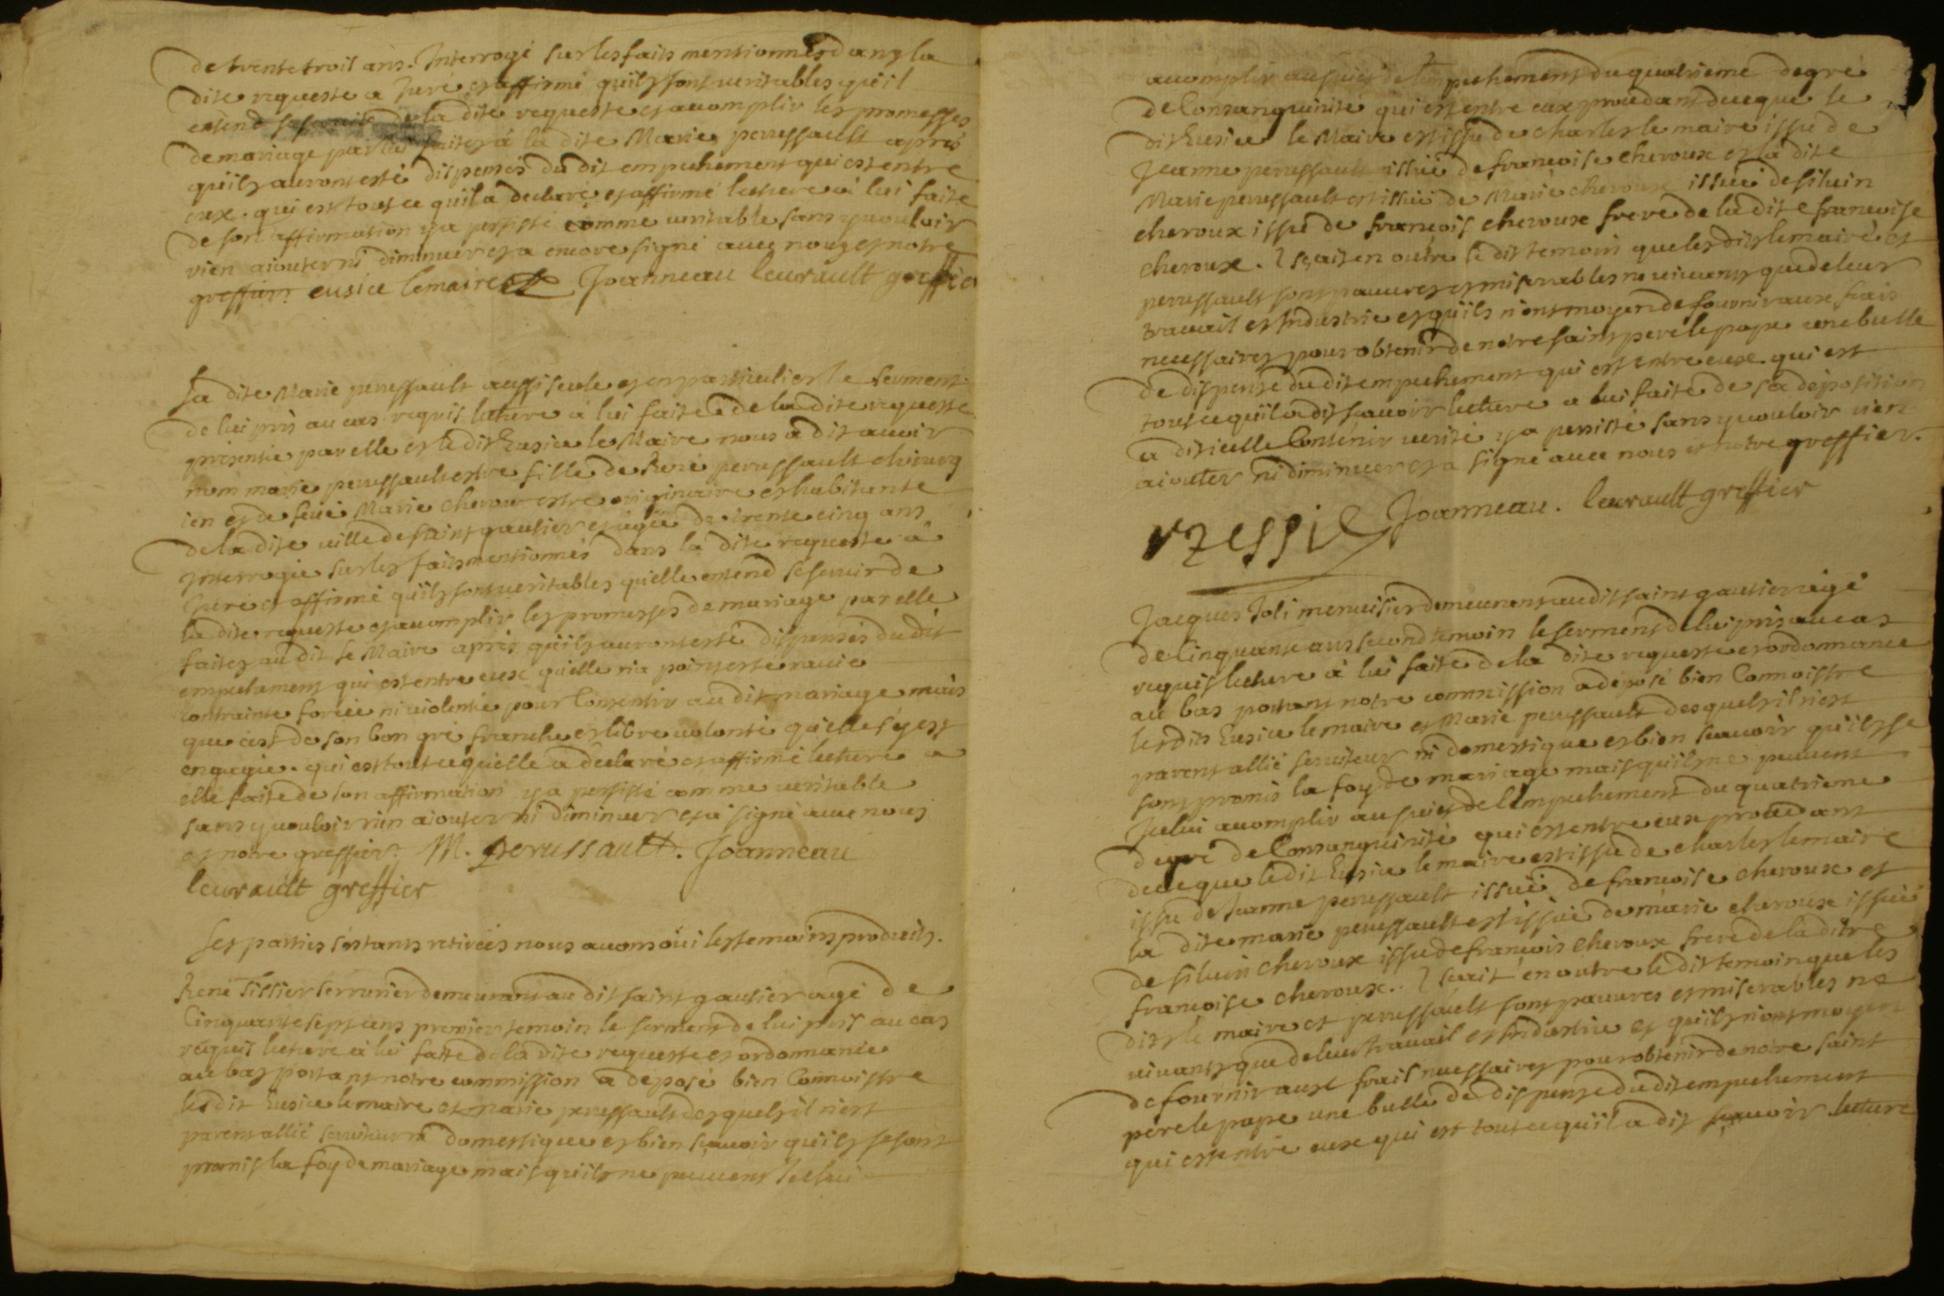 de trente trois ans. Interrogé sur les faits mentionnés dans la
dite requeste a Juré et affirmé quils sont veritables qu'il
entend se servir de la dite requeste et acomplir les promesses
de mariage par lui faites à la dite Marie perussault après
qu'ils auront esté dispensés du dit empechement qui est entre
eux. qui est tout ce quil a declaré et affirmé lecture à lui faite
de son affirmation y a persisté comme veritable sans y vouloir
rien aiouter ni diminuer et a encore signé avec nous et notre
greffier. eusice lemaire Joanneau leurault greffier
La dite Marie perussault aussi seule et en particulier le serment
de lui pris au cas requis lecture à lui faite de la dite requeste
presentée par elle et le dit Eusice le Maire nous a dit avoir
nom marie perussault estre fille de René perussault chirurg
ien et de feüe Marie cheroux estre originaire et habitante
de la dite ville de saint gautier et agée de trente cinq ans
Interrogée sur les faits mentionnés dans la dite requeste a
Juré et affirmé qu'ils sont veritables qu'elle entend se servir de
la dite requeste et acomplir les promesses de mariage par elle
faites au dit le Maire après qu'ils auront esté dispensés du dit
empechement qui est entre eux qu'elle n'a point esté ravie
contrainte forcée ni violentée pour Consentir au dit mariage mais
que c'est de son bon gré franche et libre volonté qu'elle s'y est
engagée. qui est tout ce qu'elle a déclaré et affirmé lecture a
elle faite de son affirmation y a persisté comme veritable
sans y vouloir rien aiouter ni diminuer et a signé avec nous
et notre greffier. M. perussault. Joanneau
leurault greffier
Les parties s'estants retirées nous avons oüi les temoins produits.
René Tissier serrurier demeurant au dit saint gautier agé de
Cinquante sept ans premier temoin le serment de lui pris au cas
requis lecture à lui faite de la dite requeste et ordonnance
au bas portant notre commission a deposé bien Connoistre
les dit Eusice lemaire et marie perussault desquels il n'est
parent allié serviteur ni domestique et bien sçavoir qu'ils se sont
promis la foy de mariage mais qu'ils ne peuvent Icelui
acomplir au suiet de l'empechement du quatrieme degré
de Consanguinité qui est entre eux procedant de ce que le
dit Eusice le Maire est issu de charles le maire issu de
Jeanne perussault issüe de francoise cheroux et la dite
Marie perussault est issüe de Marie cheroux issüe de siluin
cheroux issu de françois cheroux frere de la dite francoise
cheroux. Il sçait en outre le dit temoin que les dits lemaire et
perussault sont pauvres et miserables ne vivants que de leur
travail et Industrie et qu'ils n'ont moyen de fournir aux frais
necessaires pour obtenir de notre saint pere le pape une bulle
de dispense du dit empechement qui est entre eux. qui est
tout ce qu'il a dit sçavoir lecture a lui faite de sa deposition
a dit icelle Contenir verité y a persisté sans y vouloir rien
aiouter ni diminuer et a signé avec nous et notre greffier.
Joanneau. leurault greffier
Jacques Joli menuisier demeurant au dit saint gautier agé
de Cinquante ans second temoin le serment de lui pris au cas
requis lecture à lui faite de la dite requeste et ordonnance
au bas portant notre commission a deposé bien Connoistre
les dits Eusice lemaire et Marie perussault desquels il n'est
parent allié serviteur ni domestique et bien sçavoir qu'ils se
sont promis la foy de mariage mais qu'ils ne peuvent
Icelui acomplir au suiet de l'empechement du quatrieme
degré de Consanguinité qui est entre eux procedant
de ce que le dit Eusice lemaire est issu de charles lemaire
issu de Jeanne perussault issüe de francoise cheroux et
la dite marie perussault est issüe de marie cheroux issüe
de siluin cheroux issu de francois cheroux frere de la dite
francoise cheroux. Il sçait en outre le dit temoin que les
dits le maire et perussault sont pauvres et miserables ne
vivants que de leur travail et Industrie et qu'ils n'ont moyen
de fournir aux frais necessaires pour obtenir de notre saint
pere le pape une bulle de dispense du dit empechement
qui est entre eux qui est tout ce qu'il a dit sçavoir lecture